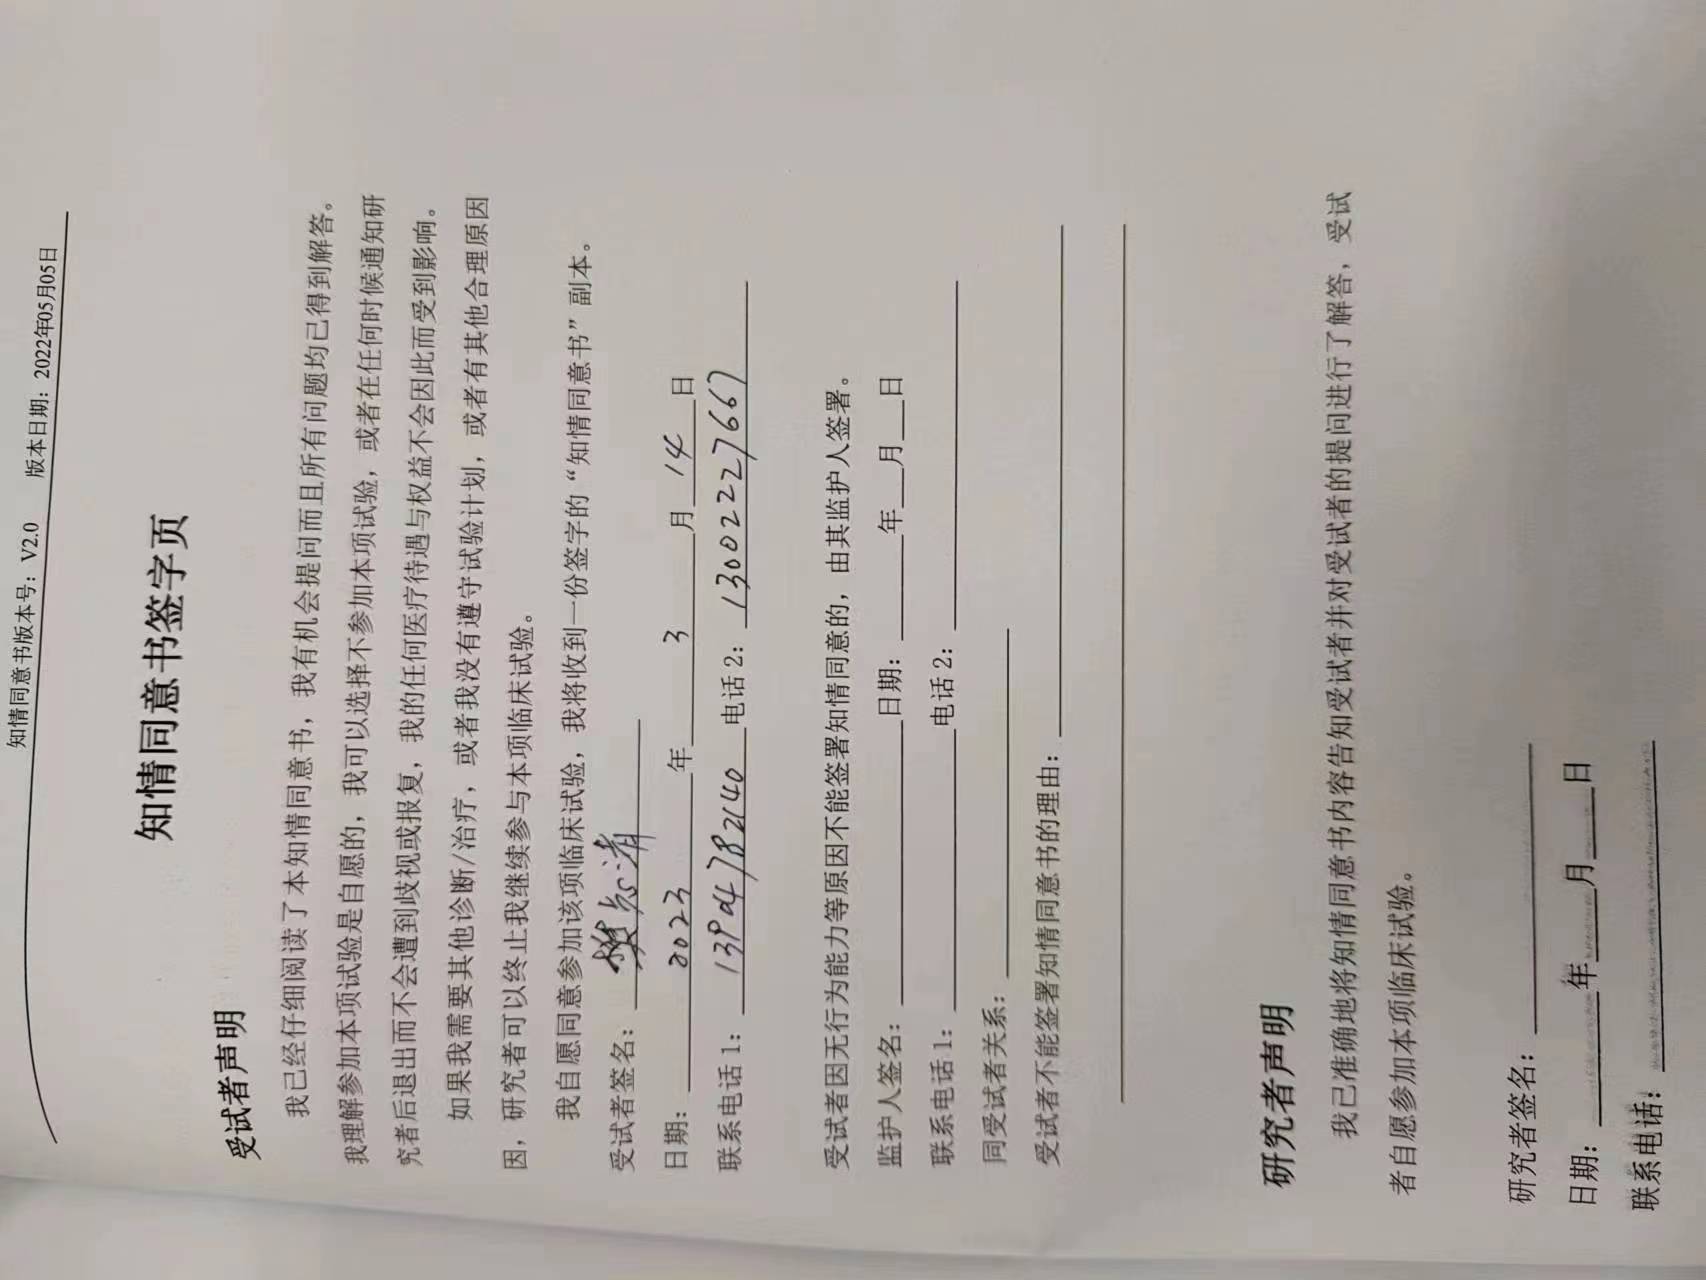 知情同意书版本号：V2.0 版本日期：2022年05月05日
知情同意书签字页
受试者声明
我已经仔细阅读了本知情同意书，我有机会提问而且所有问题均已得到解答。
我理解参加本项试验是自愿的，我可以选择不参加本项试验，或者在任何时候通知研
究者后退出而不会遭到歧视或报复，我的任何医疗待遇与权益不会因此而受到影响。
如果我需要其他诊断/治疗，或者我没有遵守试验计划，或者有其他合理原因
因，研究者可以终止我继续参与本项临床试验。
我自愿同意参加该项临床试验，我将收到一份签字的“知情同意书”副本。
受试者签名：
日期：2023年3月14日
联系电话1：13904782140 电话2：13002227667
受试者因无行为能力等原因不能签署知情同意的，由其监护人签署。
监护人签名：日期：年月日
联系电话1：电话2：
同受试者关系：
受试者不能签署知情同意书的理由：
研究者声明
我已准确地将知情同意书内容告知受试者并对受试者的提问进行了解答，受试
者自愿参加本项临床试验。
研究者签名：
日期：年月日
联系电话：